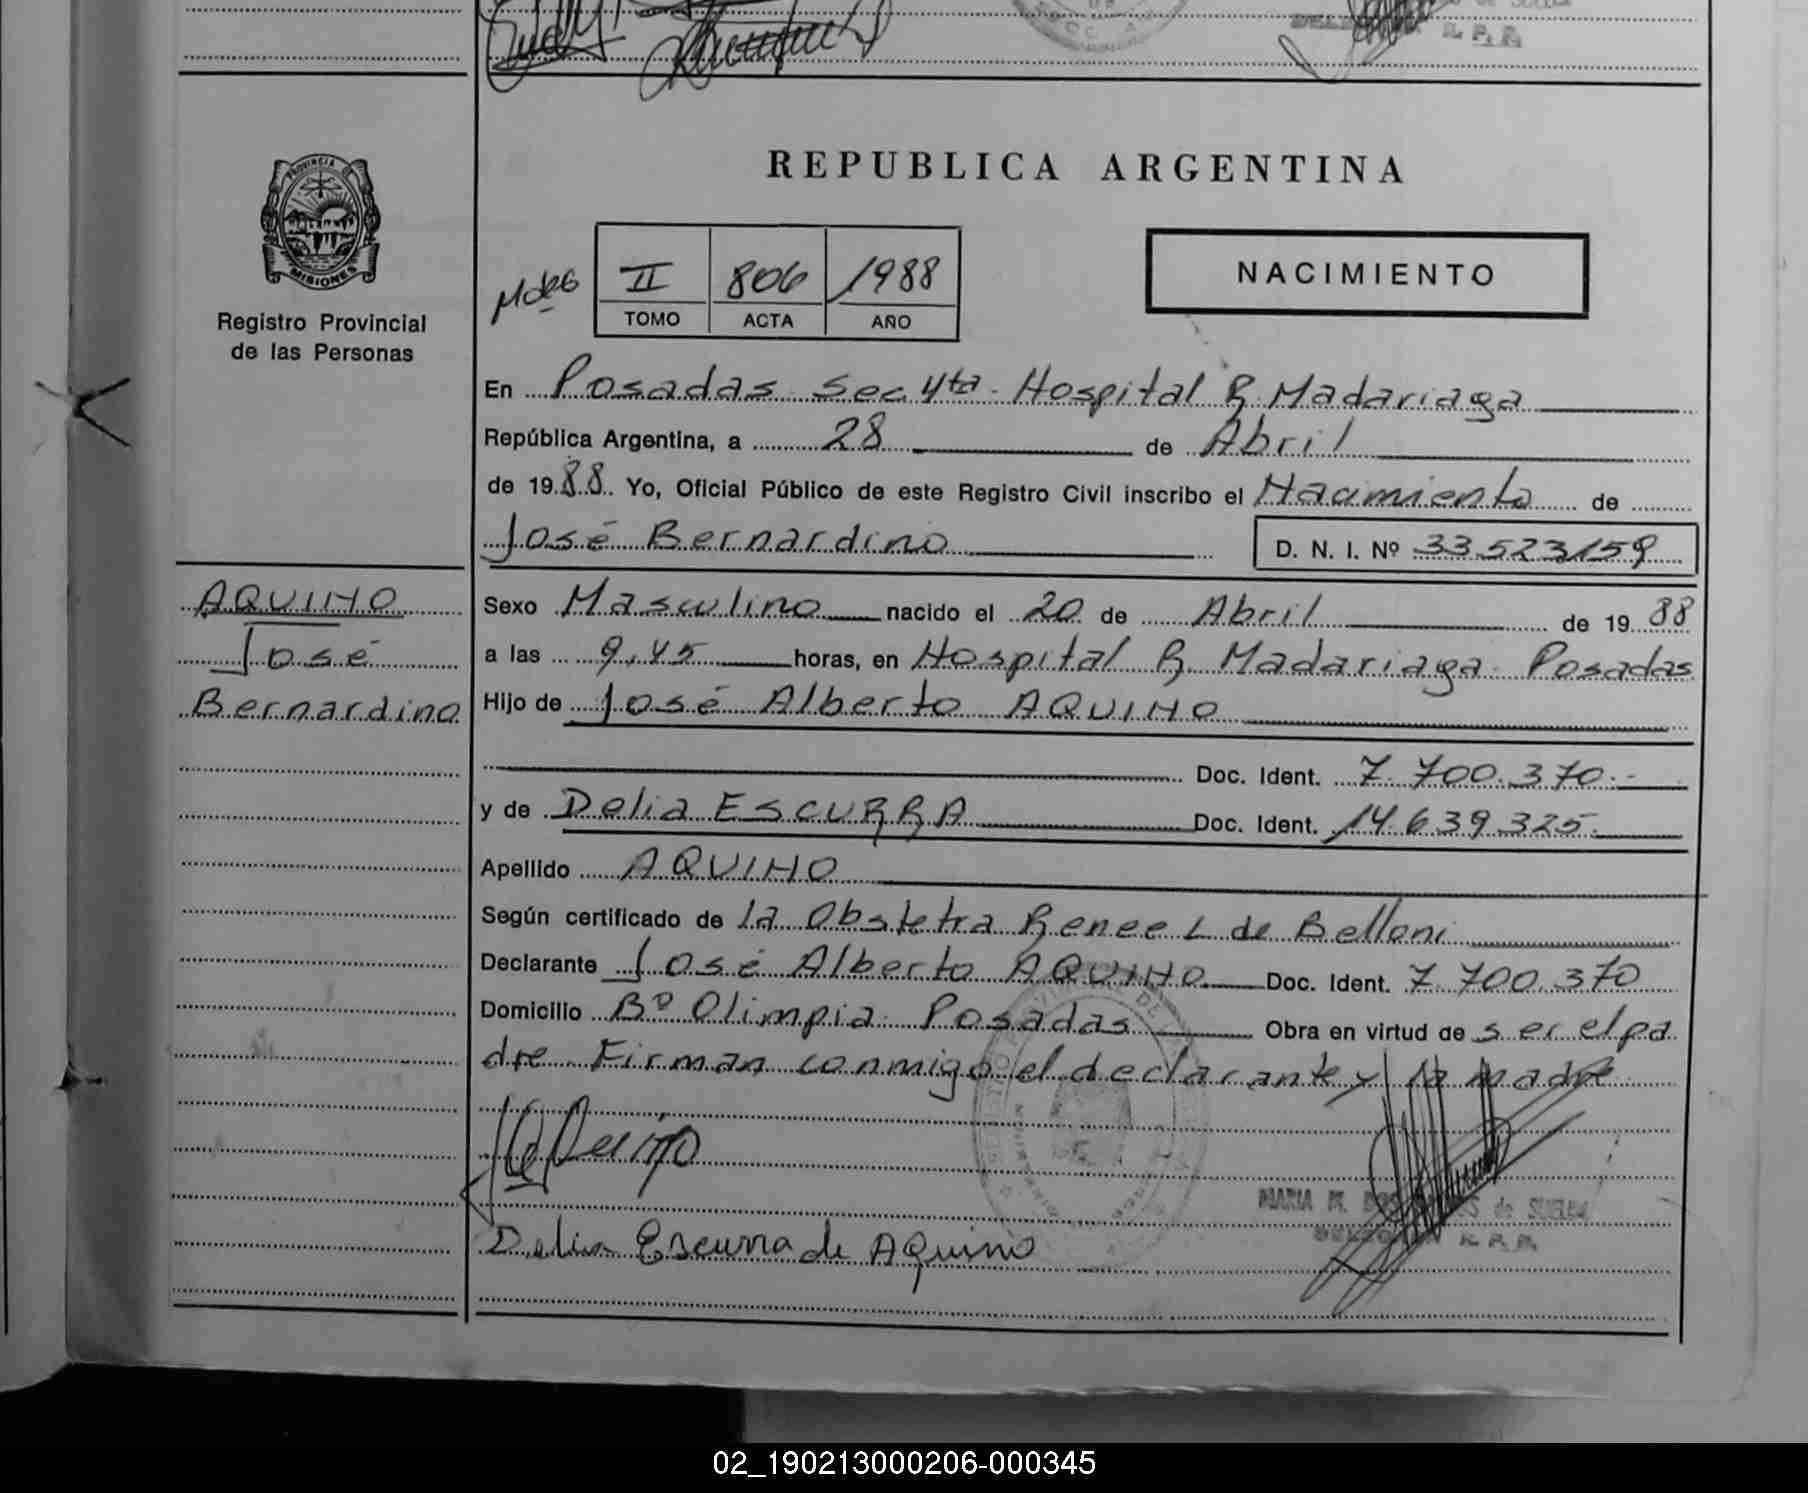 PROVINCIA
MISIONES
Registro Provincial
de las Personas
AQUINO
José
Bernardino
REPUBLICA ARGENTINA
II 806 1988
TOMO ACTA AÑO
NACIMIENTO
En Posadas Sec. 4ta. Hospital R. Madariaga
República Argentina, a 28 de Abril
de 1988. Yo, Oficial Público de este Registro Civil inscribo el Nacimiento de
José Bernardino D. N. I. Nº 33523159
Sexo Masculino nacido el 20 de Abril de 1988
a las 9,45 horas, en Hospital R. Madariaga Posadas
Hijo de José Alberto AQUINO
Doc. Ident. 7.700.370.-
y de Delia ESCURRA Doc. Ident. 14.639.325.
Apellido AQUINO
Según certificado de la Obstetra Renee L de Belloni
Declarante José Alberto AQUINO Doc. Ident. 7.700.370
Domicilio Bº Olimpia. Posadas Obra en virtud de ser el pa
dre. Firman conmigo el declarante y la madre
Delia Escurra de Aquino
MARIA M. DOS de
R. P. P.
02_190213000206-000345